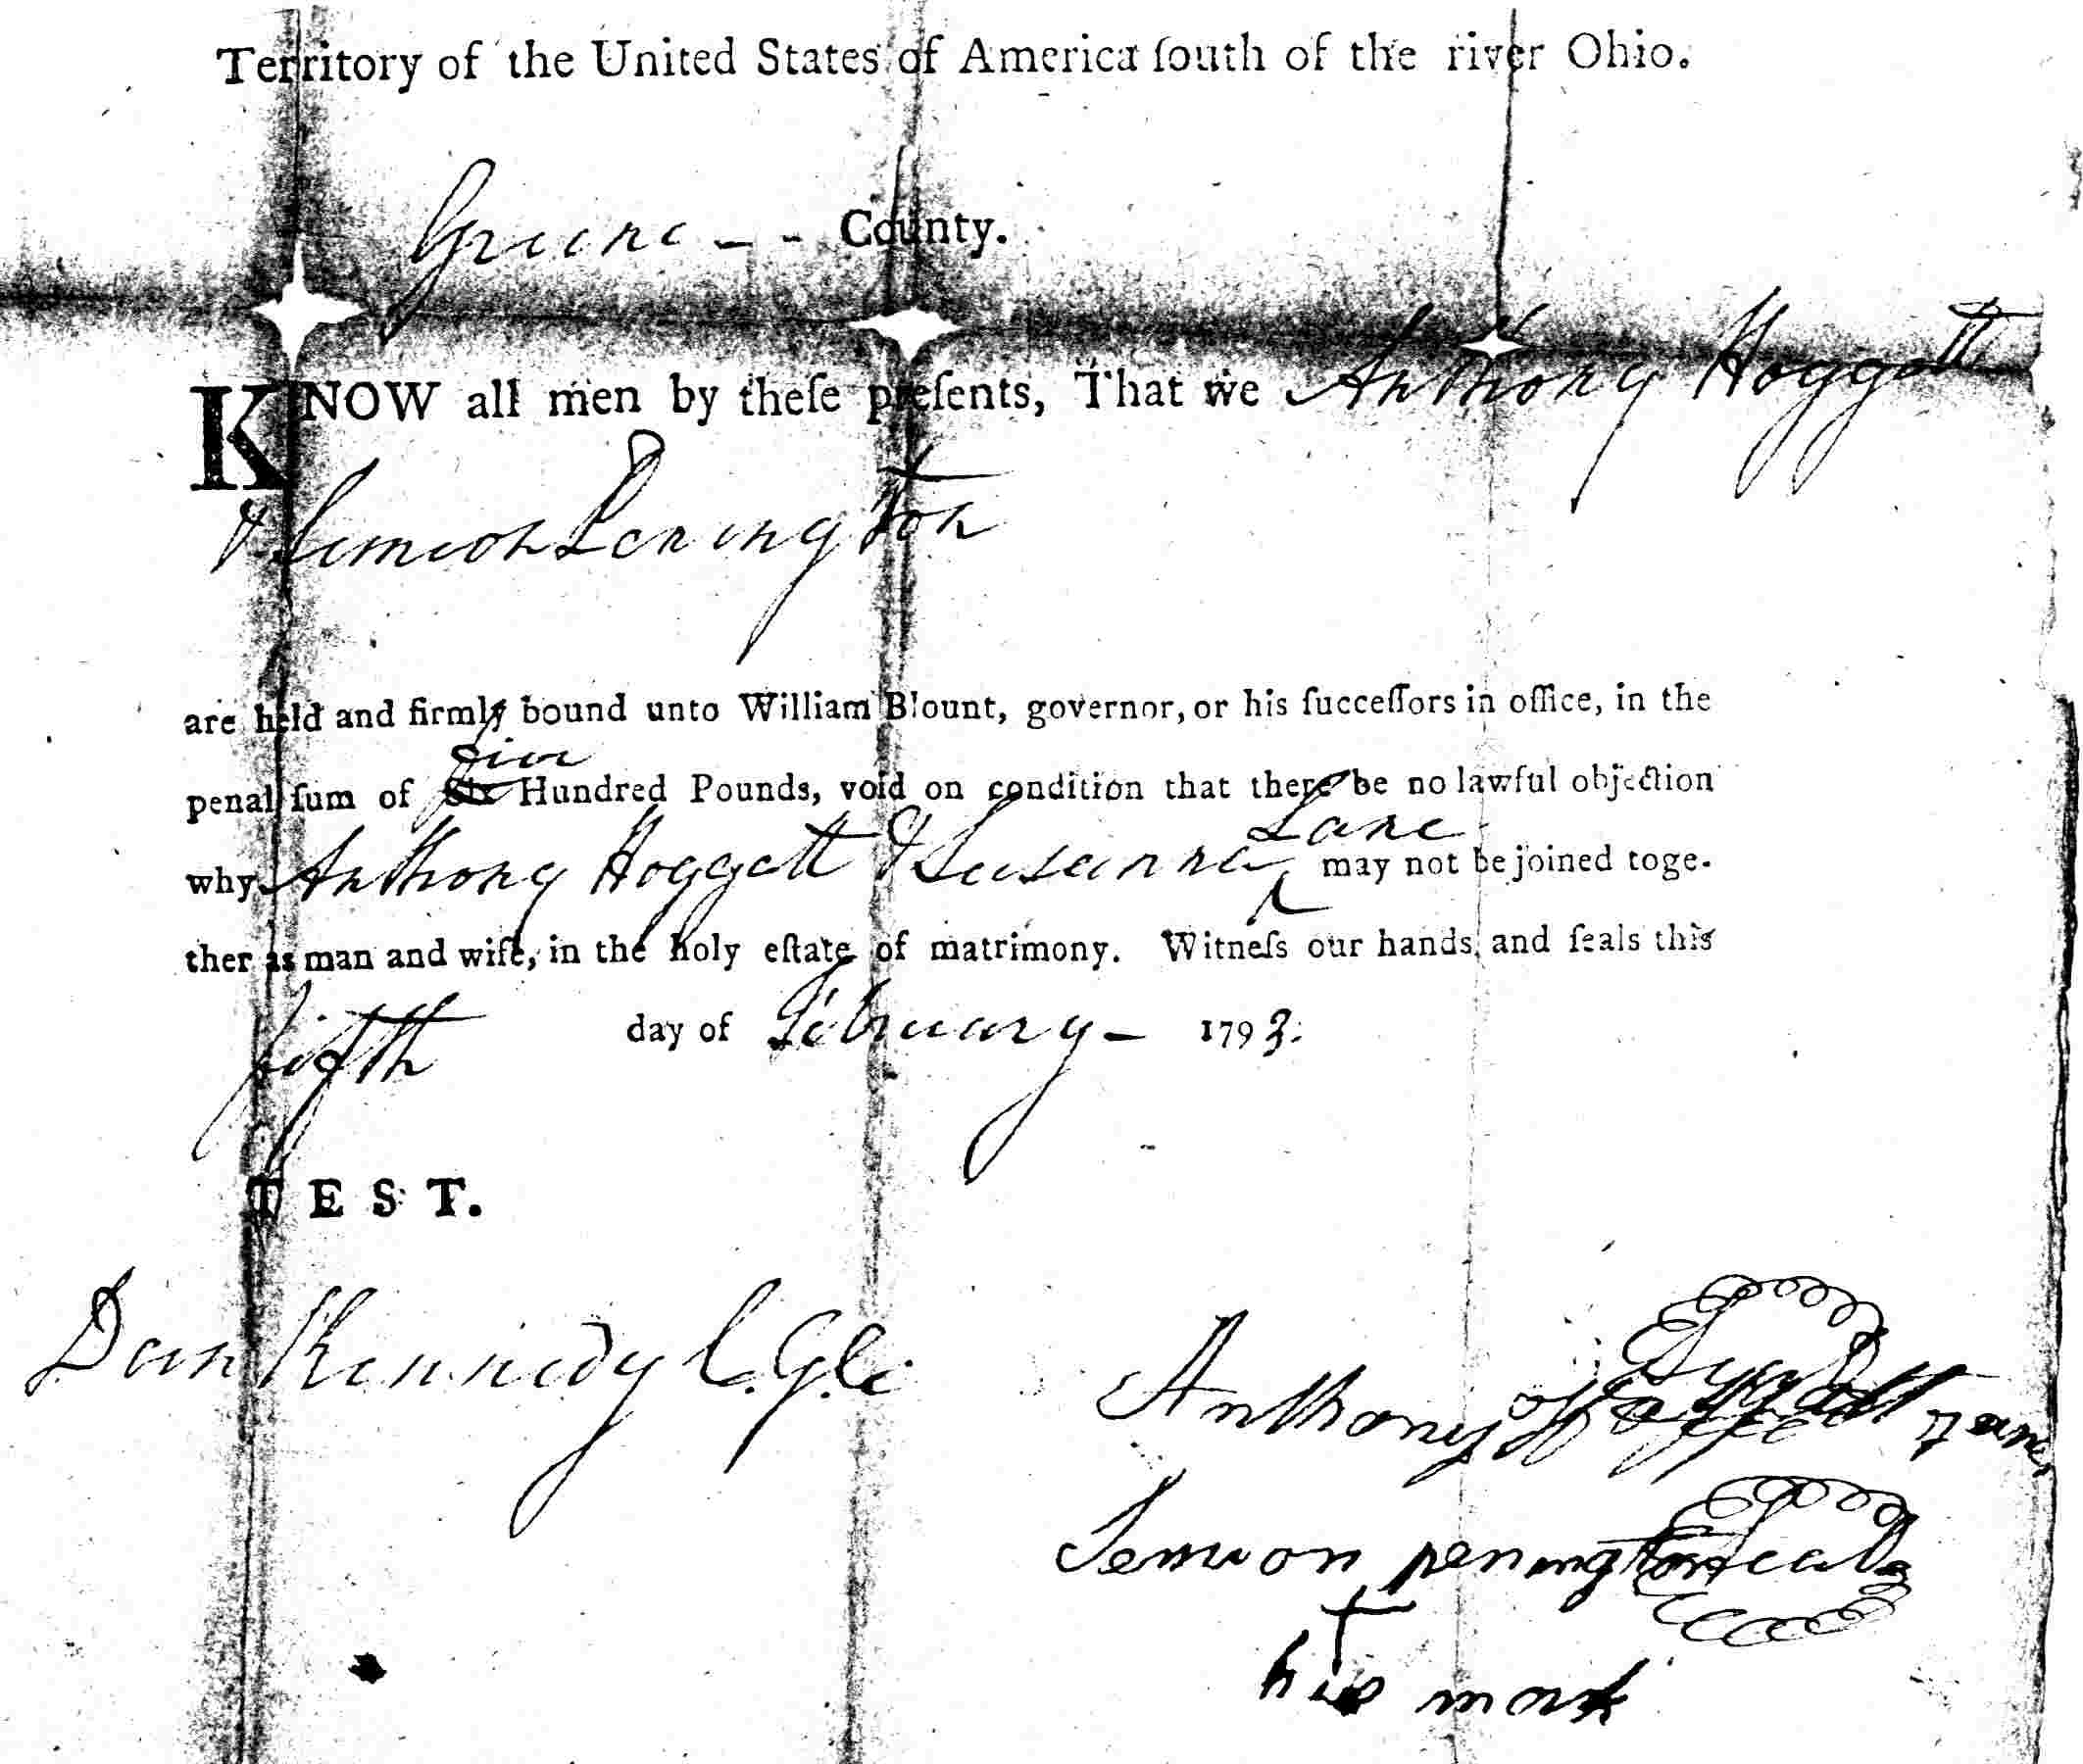 Territory of the United States of America ſouth of the river Ohio.
Greene - - County.
KNOW all men by theſe preſents, That we Anthony Hoggatt
& Simeon Penington
are held and firmly bound unto William Blount, governor, or his ſucceſſors in office, in the
five
penal ſum of Six Hundred Pounds, void on condition that there be no lawful objection
Lane
why Anthony Hoggatt & Susanna ‸ may not be joined toge-
ther as man and wife, in the holy eſtate of matrimony. Witneſs our hands and ſeals this
fifth day of February - 1793.
TEST.
Dan Kennedy C.G.C.
Anthony Hoggatt
Semion penington Seal
+
his mark